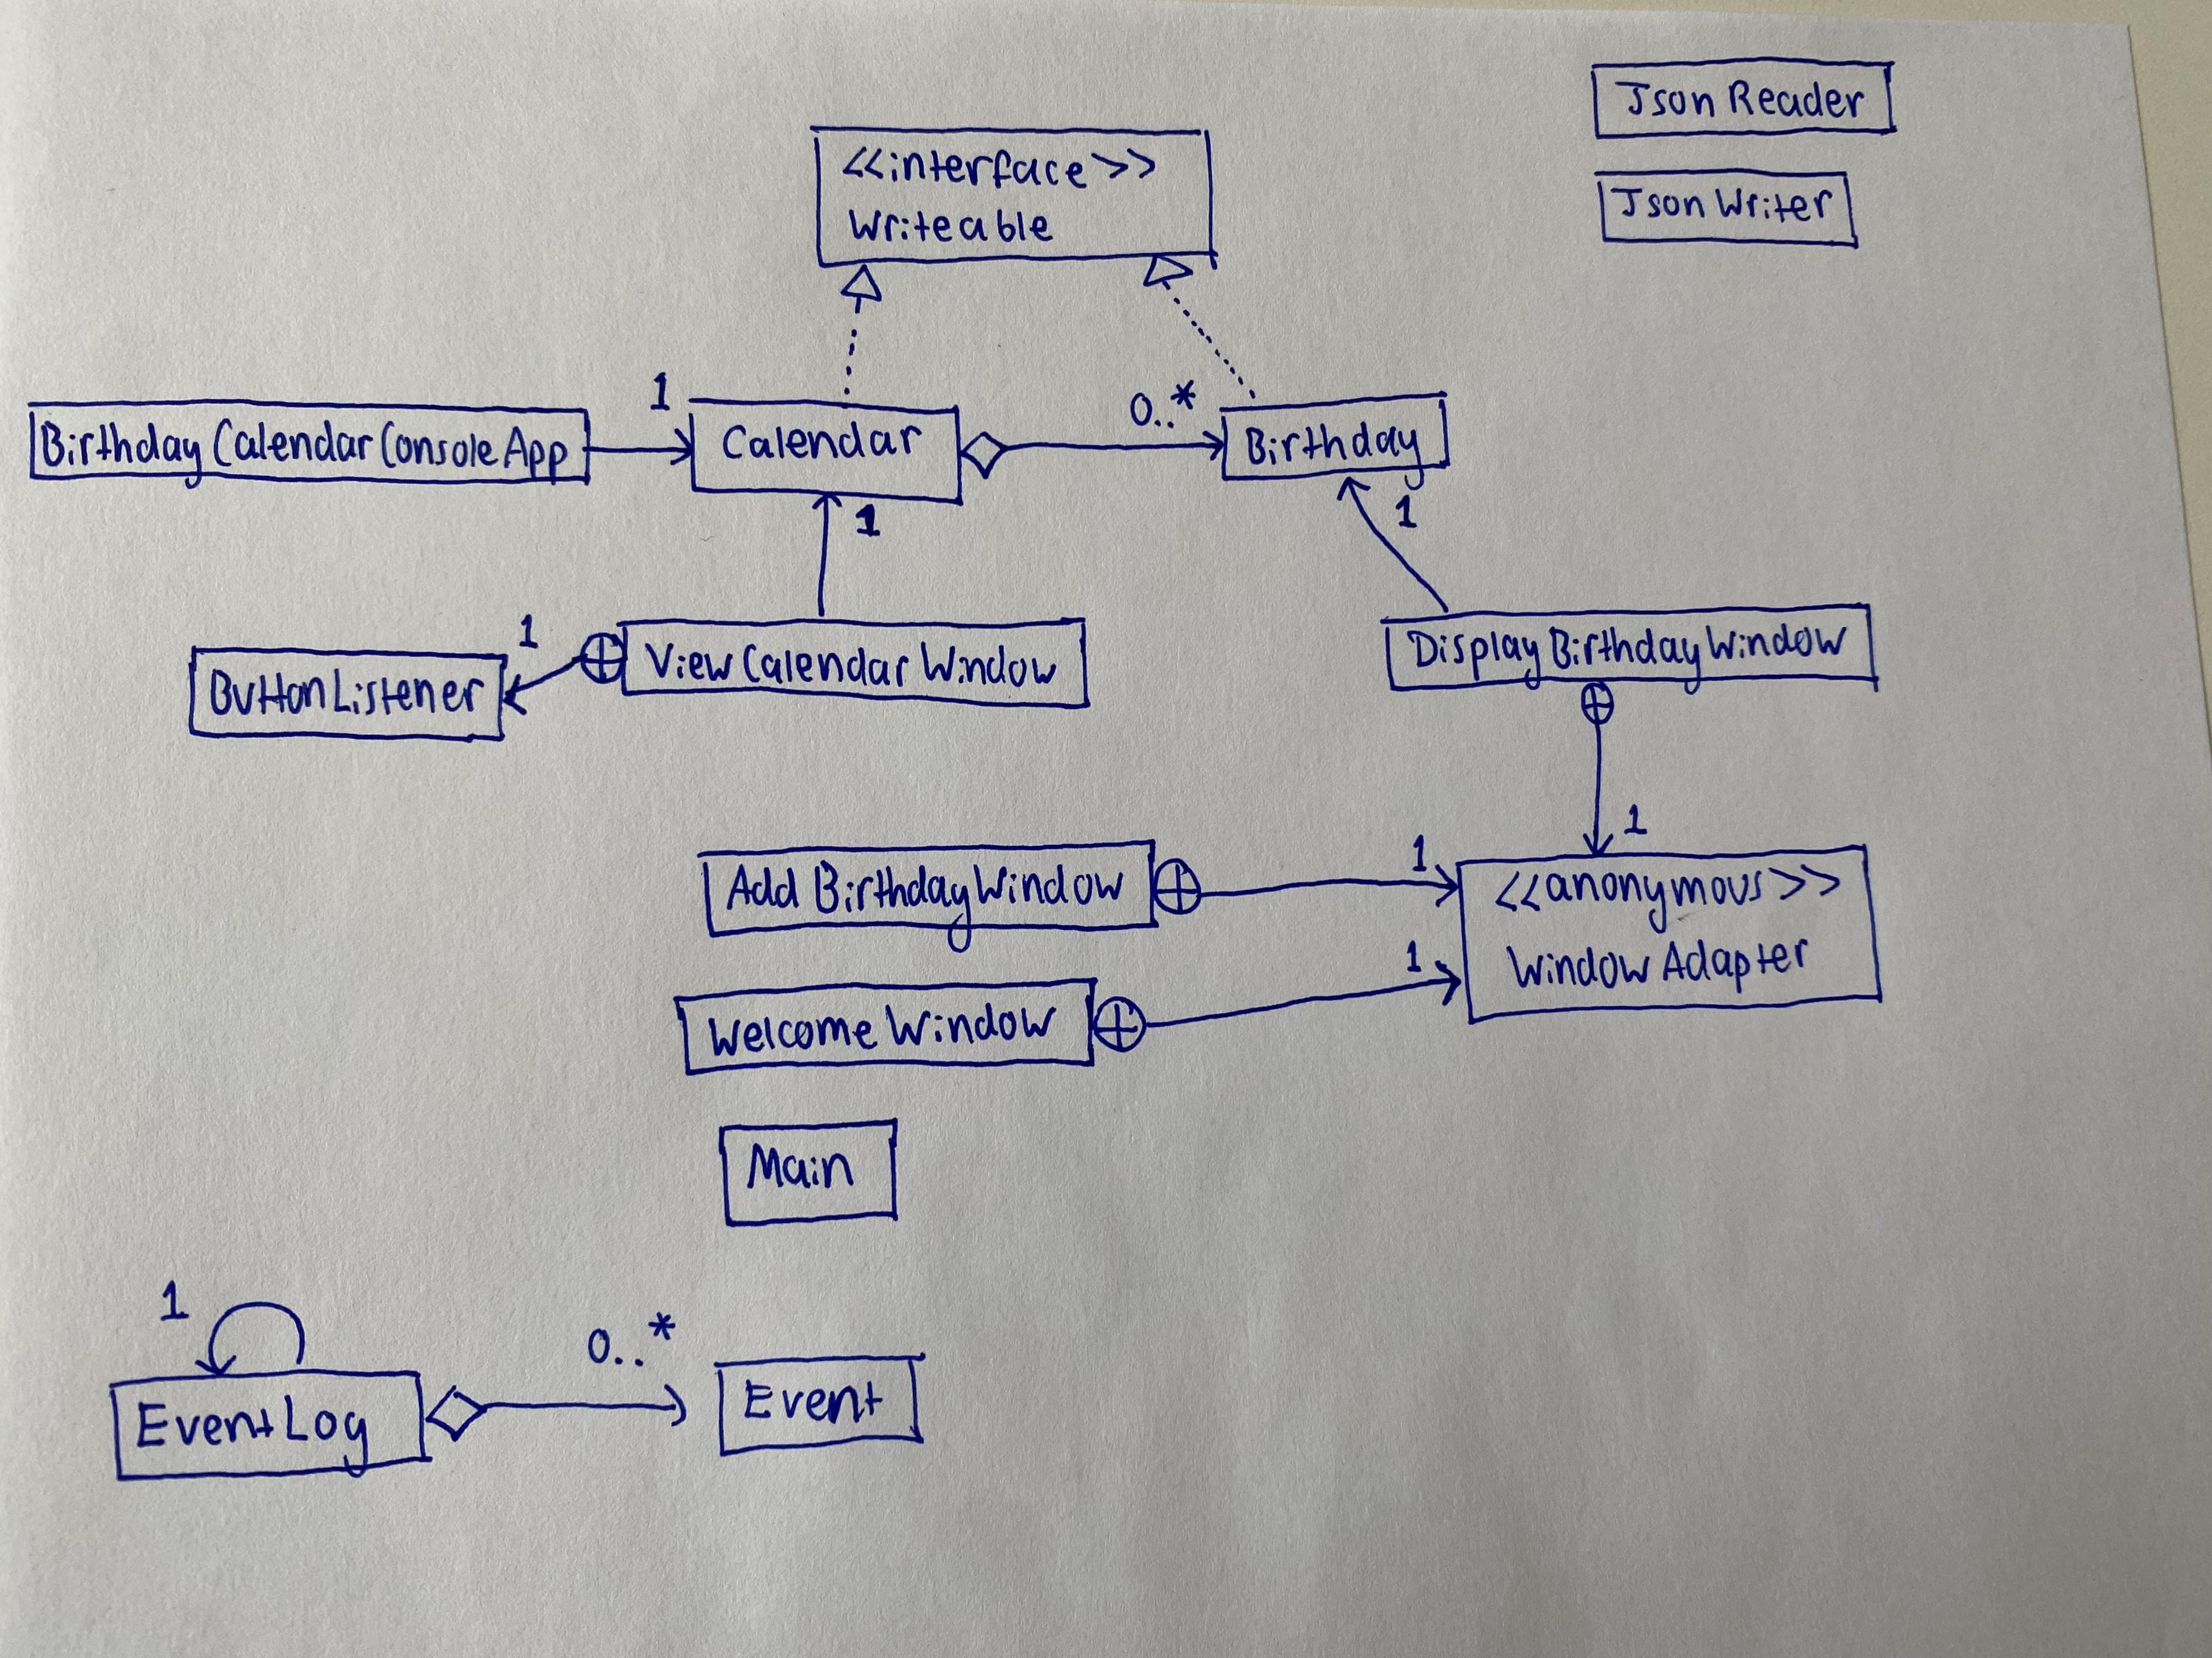 Json Reader
<<interface>>
Writeable
Json Writer
1
0..*
Birthday Calendar Console App
Calendar
Birthday
1
1
1
ButtonListener
View Calendar Window
Display Birthday Window
1
1
Add Birthday Window
<<anonymous>>
Window Adapter
1
Welcome Window
Main
1
0..*
Event Log
Event